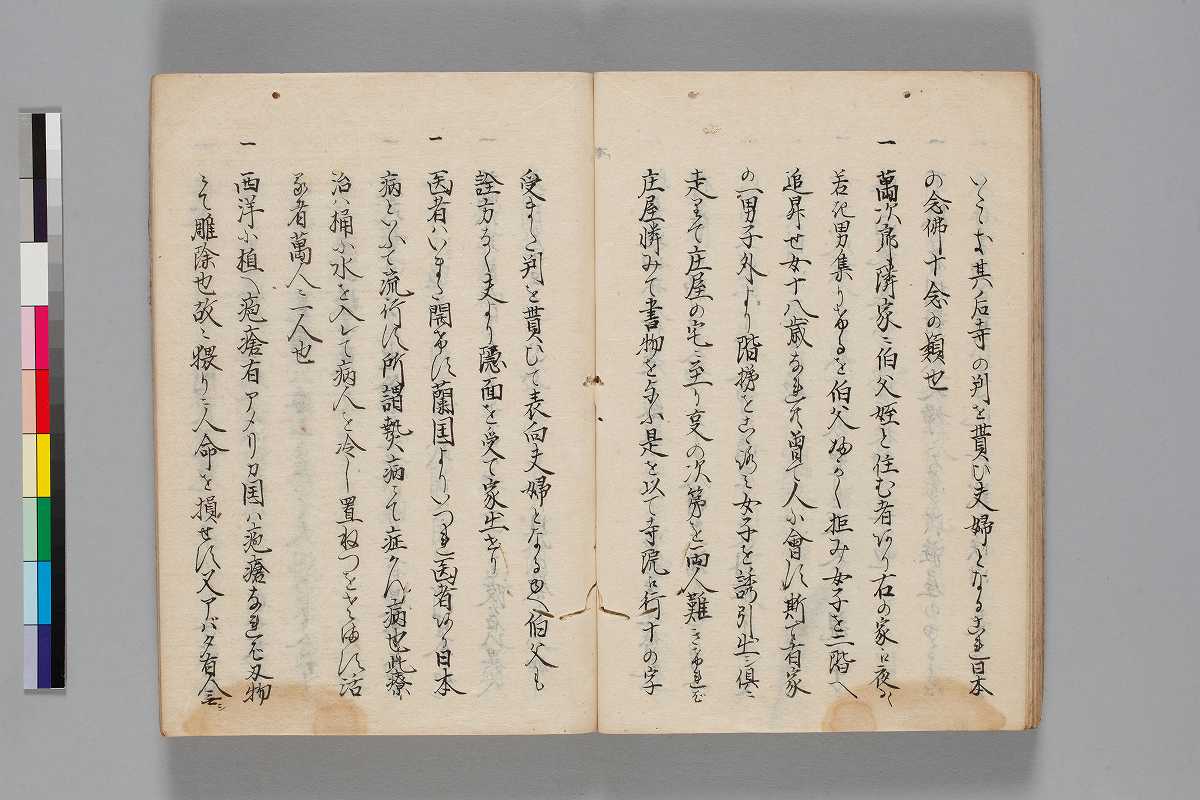 いたし其后寺の判を貰ひ夫婦となる是日本
の念佛十念の類也
一 萬次郎隣家ニ伯父姪と住む者あり右の家江夜々
若き男集りけるを伯父拒み女子を二階へ
追昇せ女十八歳なれ共曽て人に會す斯て右家
の一男子外より階梯をこしらへ女子を誘引出シ倶ニ
走りて庄屋の宅ニ至り支の次第を両人難きけれは
庄屋憐みて書物を与ふ是を以て寺院江行十の字
受また判を貰ひて表向夫婦となるゆへ伯父も
詮方なく夫より隠面を受て家出せり
一 医者はいまた開けす蘭国よりいつれ医者あり日本
病といふて流行す所謂熱病にて症かはる病也此療
治ハ桶に水を入して病人を冷し置ねつをさます活
る者萬人ニ一人也
一 西洋に植へ疱瘡有アメリカ国ハ疱瘡なれ共刃物
にて雕除也故ニ猥りニ人命を損せす又アバタ有人無シ